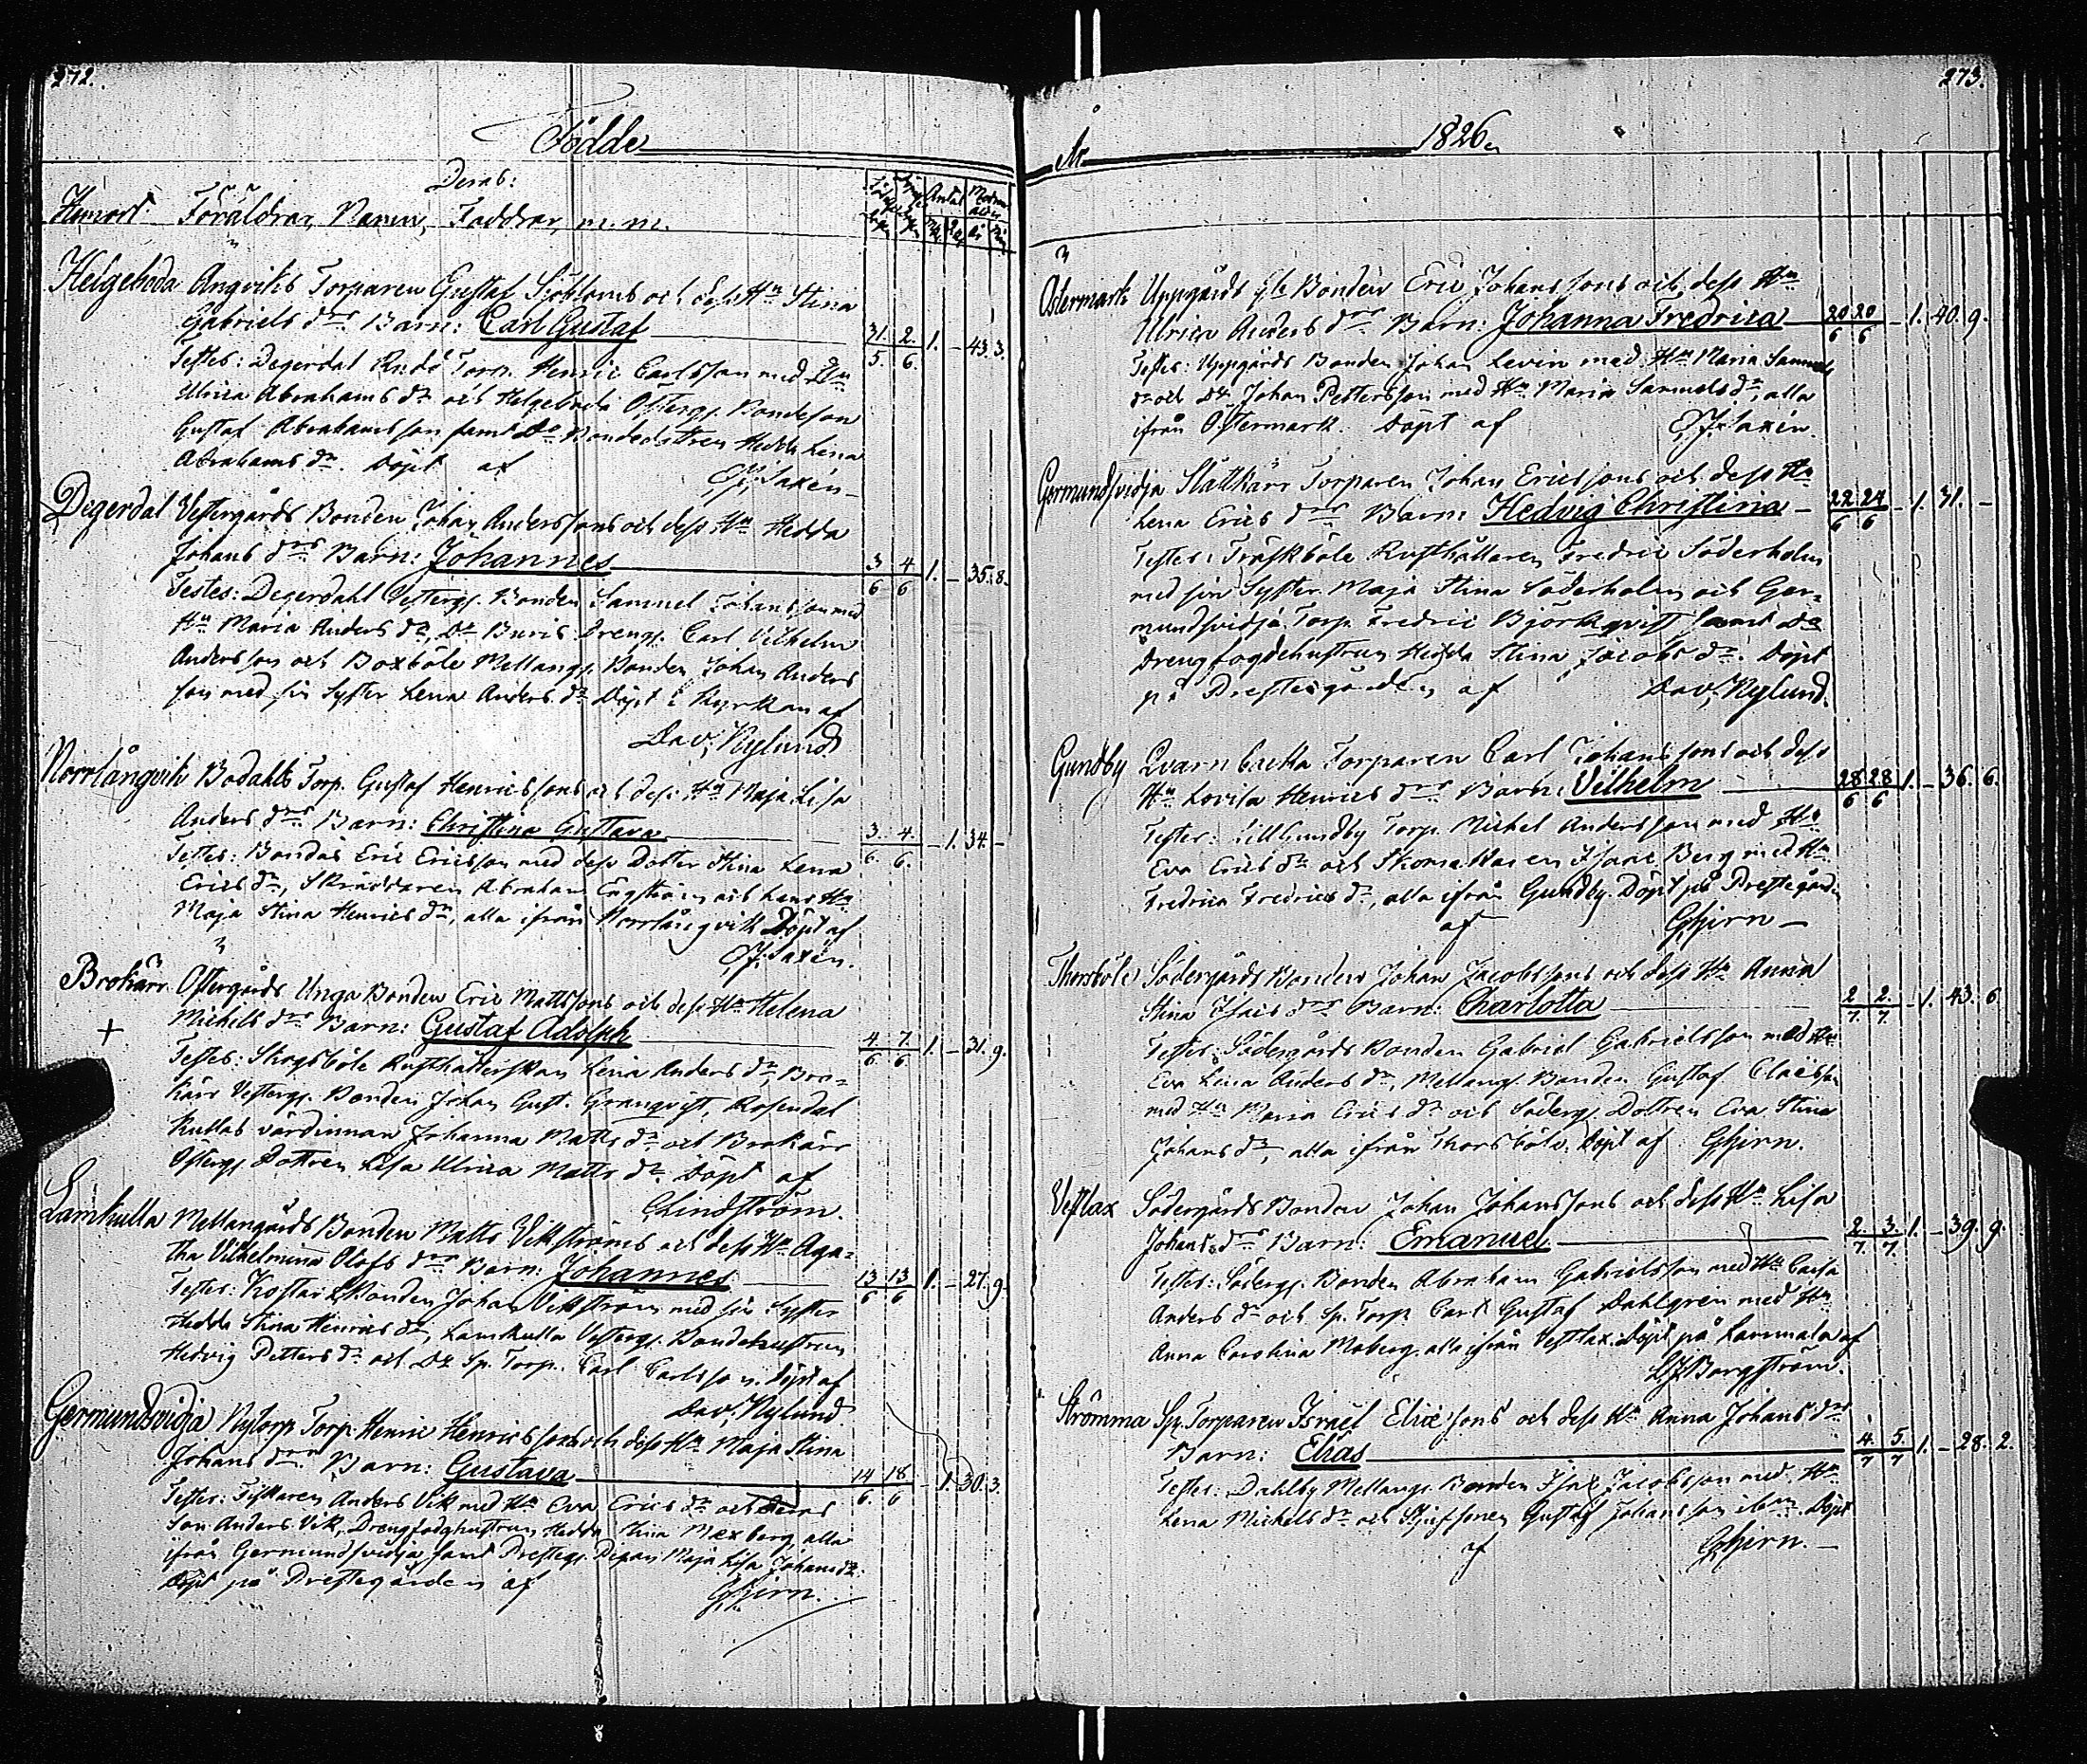 272.
Födde
Deras:
Hemort. Föräldrar, Namn, Faddrar, m. m.
Antal
Helgeboda Angviks Torparen Gustaf Sjöbloms och dess Hu Stina
Gabriels drs Barn: Carl Gustaf 31. 2. 1. - 43. 3.
5 6.
Testes: Degerdal Torp. Henric Carlsson med Hu
Ulrica Abrahams dr och Helgeboda Österg. Bondeson
Gustaf Abrahamsson samt Do Bondedottren Hedda Lena
Abrahams dr. Döpt af O.J. Saxén
Degerdal Vestergårds Bonden Johan Anderssons och dess Hu Hedda
Johans drs Barn: Johannes 3 4 1. - 35. 8.
6 6
Testes: Degerdahl Vesterg. Bonden Samuel Johansson med
Hu Maria Anders dr, Do Buris Dreng Carl Vilhelm
Andersson och Boxböle Mellang. Bonden Johan Anders
son med sin Syster Lena Anders dr Döpt i Kyrkan af
Dav. Nylund
Norrlångvik Bodahls Torp. Gustaf Henricssons och dess Hu Maja Lisa
Anders drs Barn: Christina Gustava 3. 4. - 1. 34. -
6. 6.
Testes: Bondas Eric Ericsson med dess Dotter Stina Lena
Erics dr, Skräddaren Abraham Engström och hans Hu
Maja Stina Henrics dr, alla ifrån Norrlångvik Döpt af
O.J. Saxén.
Brokärr Östergårds Unga Bonden Eric Mattssons och dess Hu Helena
+ Michels drs Barn: Gustaf Adolph 4. 7. 1. - 31. 9.
6 6
Testes: Skogsböle Rusthållerskan Lena Anders dr, Bro-
kärr Vesterg. Bonden Johan Gust. Granqvist, Rosendal
Kullas värdinnan Johanna Matts dr och Brokärr
Österg. Dottren Lisa Ulrica Matts dr Döpt af
C. Lindström.
Lamkulla Mellangårds Bonden Matts Vikströms och dess Hu Aga-
tha Vilhelmina Olofs drs Barn: Johannes 13 13 1. - 27. 9.
6 6
Testes: Bonden Johan Vikström med sin Syster
Hedda Stina Henrics dr, Lamkulla Vesterg. Bondehustrun
Hedvig Petters dr och Do Sp. Torp. Carl Carlsson. Döpt af
Dav. Nylund
Germundsvidja Nytorp Torp. Henric Henricssons och dess Hu Maja Stina
Johans drs Barn: Gustava 14 18 - 1. 30. 3.
6. 6
Testes: Fiskaren Anders Vik med Hu Eva Erics dr och deras
Son Anders Vik, Drengfogdhustrun Hedda Stina Mexberg, alla
ifrån Germundsvidja samt Presteg. Pigan Maja Lisa Johansdr.
Döpt på Prestegården af G. Hjirn.
273.
År 1826
Östermark Uppgårds Bonden Eric Johanssons och dess Hu
Ulrica Anders drs Barn: Johanna Fredrica 20 20 - 1. 40. 9.
6 6
Testes: Uppgårds Bonden Johan Levin med Hu Maria Samuels
dr och Do Johan Pettersson med Hu Maria Samuels dr, alla
ifrån Östermark. Döpt af O.J. Saxén.
Germundsvidja Slättkärr Torparen Johan Ericssons och dess Hu
Lena Erics drs Barn: Hedvig Christina 22 24 - 1. 31. -
6 6
Testes: Träskböle Rusthållaren Fredric Söderholm
med sin Syster Maja Stina Söderholm och Ger-
mundsvidja Torp. Fredric Björkqvist samt Do
Drengfogdehustrun Hedda Stina Jacobs dr. Döpt
på Prestegården af Dav. Nylund.
Gundby Qvarnbacka Torparen Carl Johanssons och dess
Hu Lovisa Henrics drs Barn: Vilhelm 28 28 1. - 36. 6.
6 6
Testes: Lillgundby Torp. Michel Andersson med Hu
Eva Erics dr och Skomakaren Isaac Berg med Hu
Fredrica Fredrics dr, alla ifrån Gundby. Döpt på Prestegården
af G. Hjirn
Thorsböle Södergårds Bonden Johan Jacobssons och dess Hu Anna
Stina Isacs drs Barn: Charlotta 2 2. - 1. 43. 6
7. 7.
Testes: Södergårds Bonden Gabriel Gabrielsson med Hu
Eva Lena Anders dr, Mellang. Bonden Gustaf Claësson
med Hu Maria Erics dr och Söderg. Dottren Eva Stina
Johans dr, alla ifrån Thorsböle. Döpt af G. Hjirn.
Vestlax Södergårds Bonden Johan Johanssons och dess Hu Lisa
Johans drs Barn: Emanuel 2. 3. 1. - 39. 9.
7. 7.
Testes: Söderg. Bonden Abraham Gabrielsson med Hu Caisa
Anders dr och Sp. Torp. Carl Gustaf Dahlgren med Hu
Anna Carolina Moberg, alla ifrån Vestlax. Döpt på Lammala af
Bergström.
Strömma Sp. Torparen Israël Elissons och dess Hu Anna Johans drs
Barn: Elias 4. 5. 1. - 28. 2.
7 7
Testes: Dahlby Mellang. Bonden Isac Jacobsson med Hu
Lena Michels dr och Stjufsonen Gustaf Johansson ibm. Döpt
af G. Hjirn.